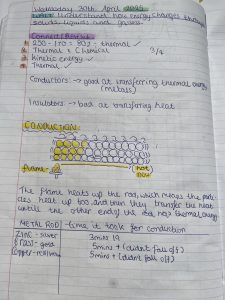 Wednesday 30th April 2025
Understand how energy changes through
solids, liquids and gases.
Connect Retrieval
250 - 170 = 80J - thermal ✓
Thermal & Chemical
3/4
Kinetic energy ✓
Thermal ✓
Conductors → good at transferring thermal energy
(metals)
Insulators → bad at transferring heat
CONDUCTION
flame
not
The flame heats up the rod, which means the
heat up too, and then they transfer the heat
until the other end of the rod has thermal energy
METAL ROD - time it took for conduction
Zinc - silver 3mins 19
Brass - gold 5mins + (didnt fall off)
Copper - 5mins + (didnt fall off)